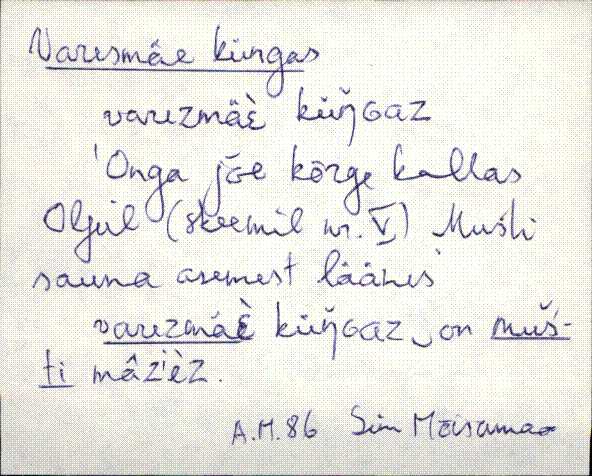 Varesmäe küngas
varezmäè küŋGaz
'Onga jõe kõrge kallas
Oljul (skeemil nr. V) Mušti
sauna asemest läänes
varezmäè küŋGaz on muš-
ti mâz'èz.
A.M. 86 Siim Mõisamaa